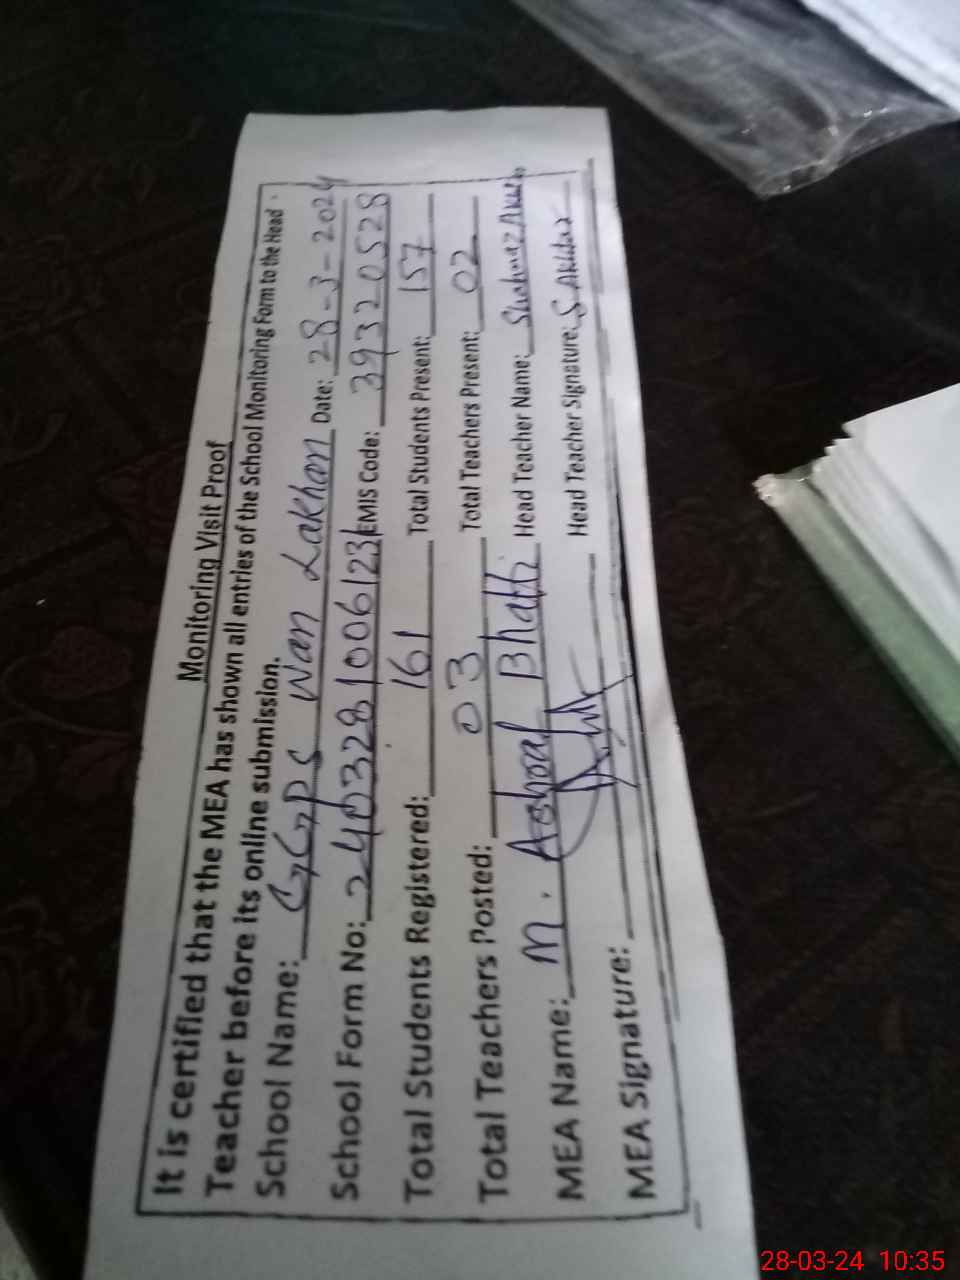 Monitoring Visit Proof
It is certified that the MEA has shown all entries of the School Monitoring Form to the Head
Teacher before its online submission.
School Name: GGPS Wan Lakhan Date: 28-3-2024
School Form No: 2403281006123 EMIS Code: 39320528
Total Students Registered: 161 Total Students Present: 157
Total Teachers Posted: 03 Total Teachers Present: 02
MEA Name: M. Ashraf Bhatti Head Teacher Name: Shahnaz Akhtar
MEA Signature: Head Teacher Signature: S. Akhtar
28-03-24 10:35